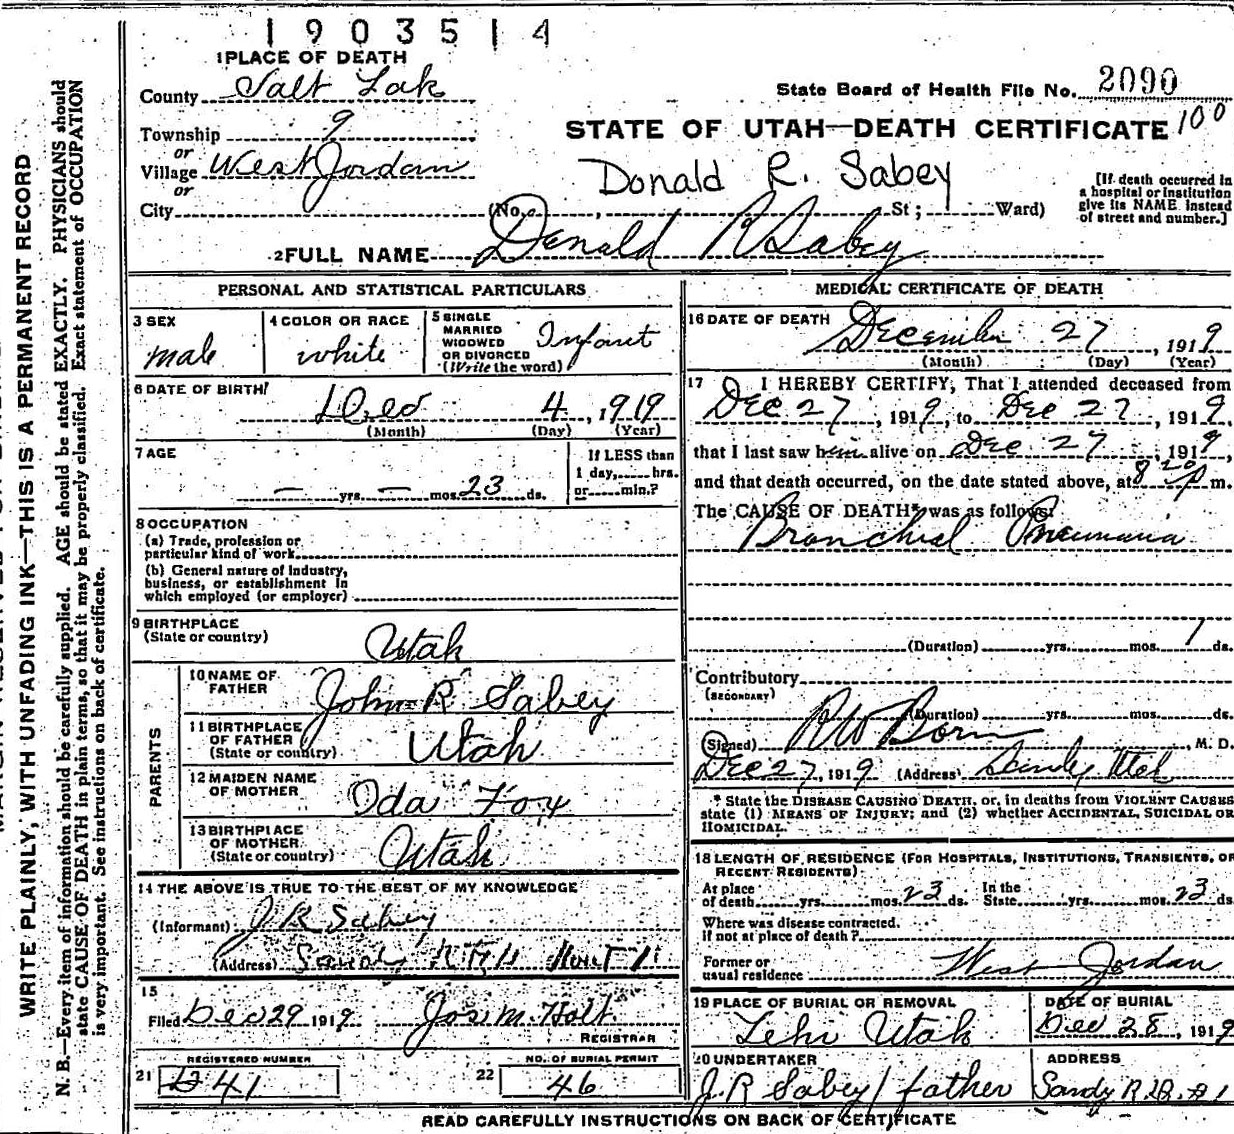 1903514
1 PLACE OF DEATH
County Salt Lak
State Board of Health File No. 2090
Township 9
STATE OF UTAH—DEATH CERTIFICATE 100
or
Village West Jordan
Donald R. Sabey
or
City (No. , St ; Ward)
[If death occurred in a hospital or institution give its NAME instead of street and number.]
2 FULL NAME Donald R Sabey
PERSONAL AND STATISTICAL PARTICULARS
3 SEX
male
4 COLOR OR RACE
white
5 SINGLE
MARRIED
WIDOWED
OR DIVORCED
(Write the word)
Infant
6 DATE OF BIRTH
Dec 4, 1919
(Month) (Day) (Year)
7 AGE
— yrs. — mos. 23 ds.
If LESS than
1 day, hrs.
or min.?
8 OCCUPATION
(a) Trade, profession or
particular kind of work
(b) General nature of industry,
business, or establishment in
which employed (or employer)
9 BIRTHPLACE
(State or country)
Utah
PARENTS
10 NAME OF
FATHER
John R Sabey
11 BIRTHPLACE
OF FATHER
(State or country)
Utah
12 MAIDEN NAME
OF MOTHER
Oda Fox
13 BIRTHPLACE
OF MOTHER
(State or country)
Utah
14 THE ABOVE IS TRUE TO THE BEST OF MY KNOWLEDGE
(Informant) J R Sabey
(Address) Sandy
15
Filed Dec 29 1919 Jos. M. Holt
REGISTRAR
REGISTERED NUMBER
21 41
NO. OF BURIAL PERMIT
22 46
MEDICAL CERTIFICATE OF DEATH
16 DATE OF DEATH
December 27, 1919
(Month) (Day) (Year)
17 I HEREBY CERTIFY, That I attended deceased from
Dec 27, 1919, to Dec 27, 1919,
that I last saw him alive on Dec 27, 1919,
and that death occurred, on the date stated above, at 8 20 p m.
The CAUSE OF DEATH* was as follows:
Bronchial Pneumonia
(Duration) yrs. mos. 1 ds.
Contributory
(SECONDARY)
(Duration) yrs. mos. ds.
(Signed) R W Born, M. D.
Dec 27, 1919 (Address) Sandy Utah
* State the DISEASE CAUSING DEATH, or, in deaths from VIOLENT CAUSES
state (1) MEANS OF INJURY; and (2) whether ACCIDENTAL, SUICIDAL OR
HOMICIDAL.
18 LENGTH OF RESIDENCE (FOR HOSPITALS, INSTITUTIONS, TRANSIENTS, OR
RECENT RESIDENTS)
At place
of death yrs. mos. 23 ds.
In the
State yrs. mos. 23 ds
Where was disease contracted.
If not at place of death?
Former or
usual residence West Jordan
19 PLACE OF BURIAL OR REMOVAL
Lehi Utah
DATE OF BURIAL
Dec 28, 1919
20 UNDERTAKER
J. R Sabey / father
ADDRESS
Sandy R.D. #1
READ CAREFULLY INSTRUCTIONS ON BACK OF CERTIFICATE
WRITE PLAINLY, WITH UNFADING INK—THIS IS A PERMANENT RECORD
N. B.—Every item of information should be carefully supplied. AGE should be stated EXACTLY. PHYSICIANS should
state CAUSE OF DEATH in plain terms, so that it may be properly classified. Exact statement of OCCUPATION
is very important. See instructions on back of certificate.